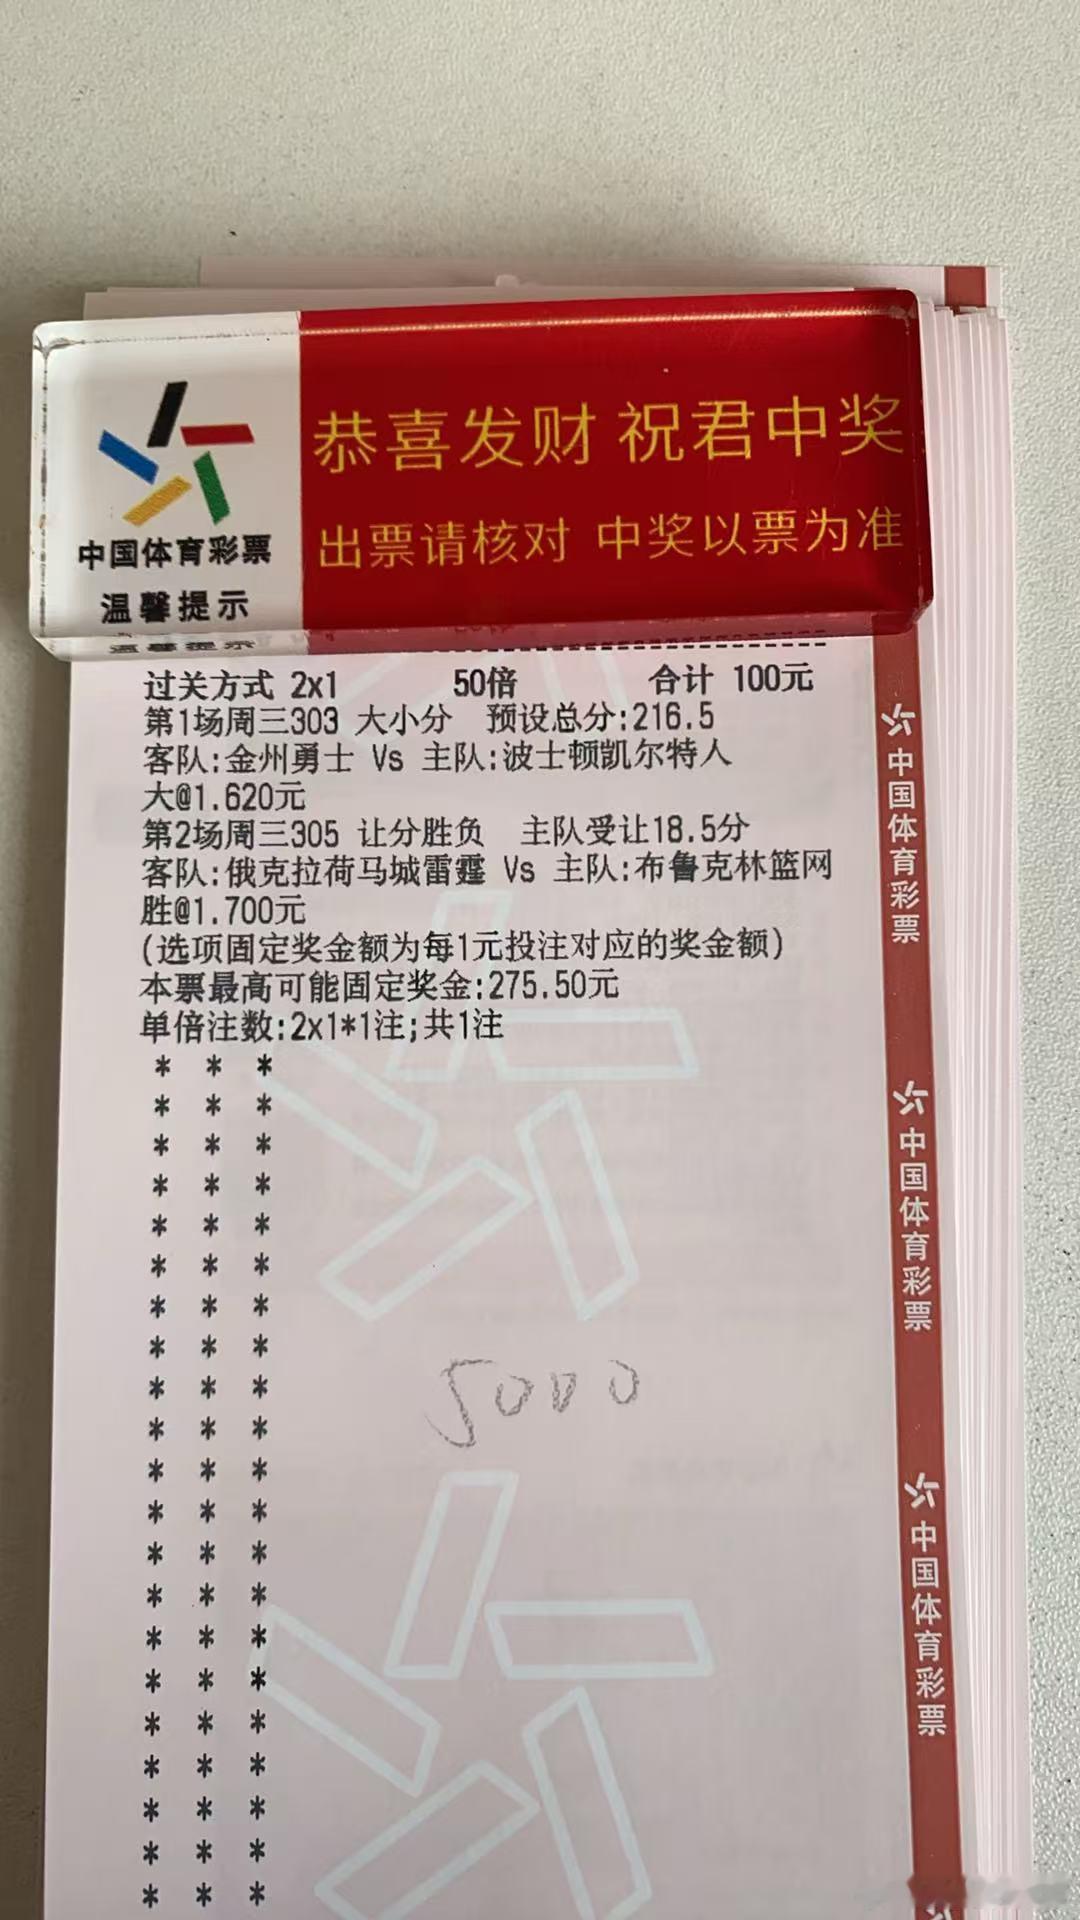 恭喜发财 祝君中奖
出票请核对 中奖以票为准
中国体育彩票
温馨提示
过关方式 2x1 50倍 合计 100元
第1场周三303 大小分 预设总分:216.5
客队:金州勇士 Vs 主队:波士顿凯尔特人
大@1.620元
第2场周三305 让分胜负 主队受让18.5分
客队:俄克拉荷马城雷霆 Vs 主队:布鲁克林篮网
胜@1.700元
(选项固定奖金额为每1元投注对应的奖金额)
本票最高可能固定奖金:275.50元
单倍注数:2x1*1注;共1注
* * *
* * *
* * *
* * *
* * *
* * *
* * *
* * *
* * *
* * *
* * *
* * *
* * *
* * *
* * *
* * *
* * *
* * *
* * *
* * *
* * *
5000
中国体育彩票
中国体育彩票
中国体育彩票